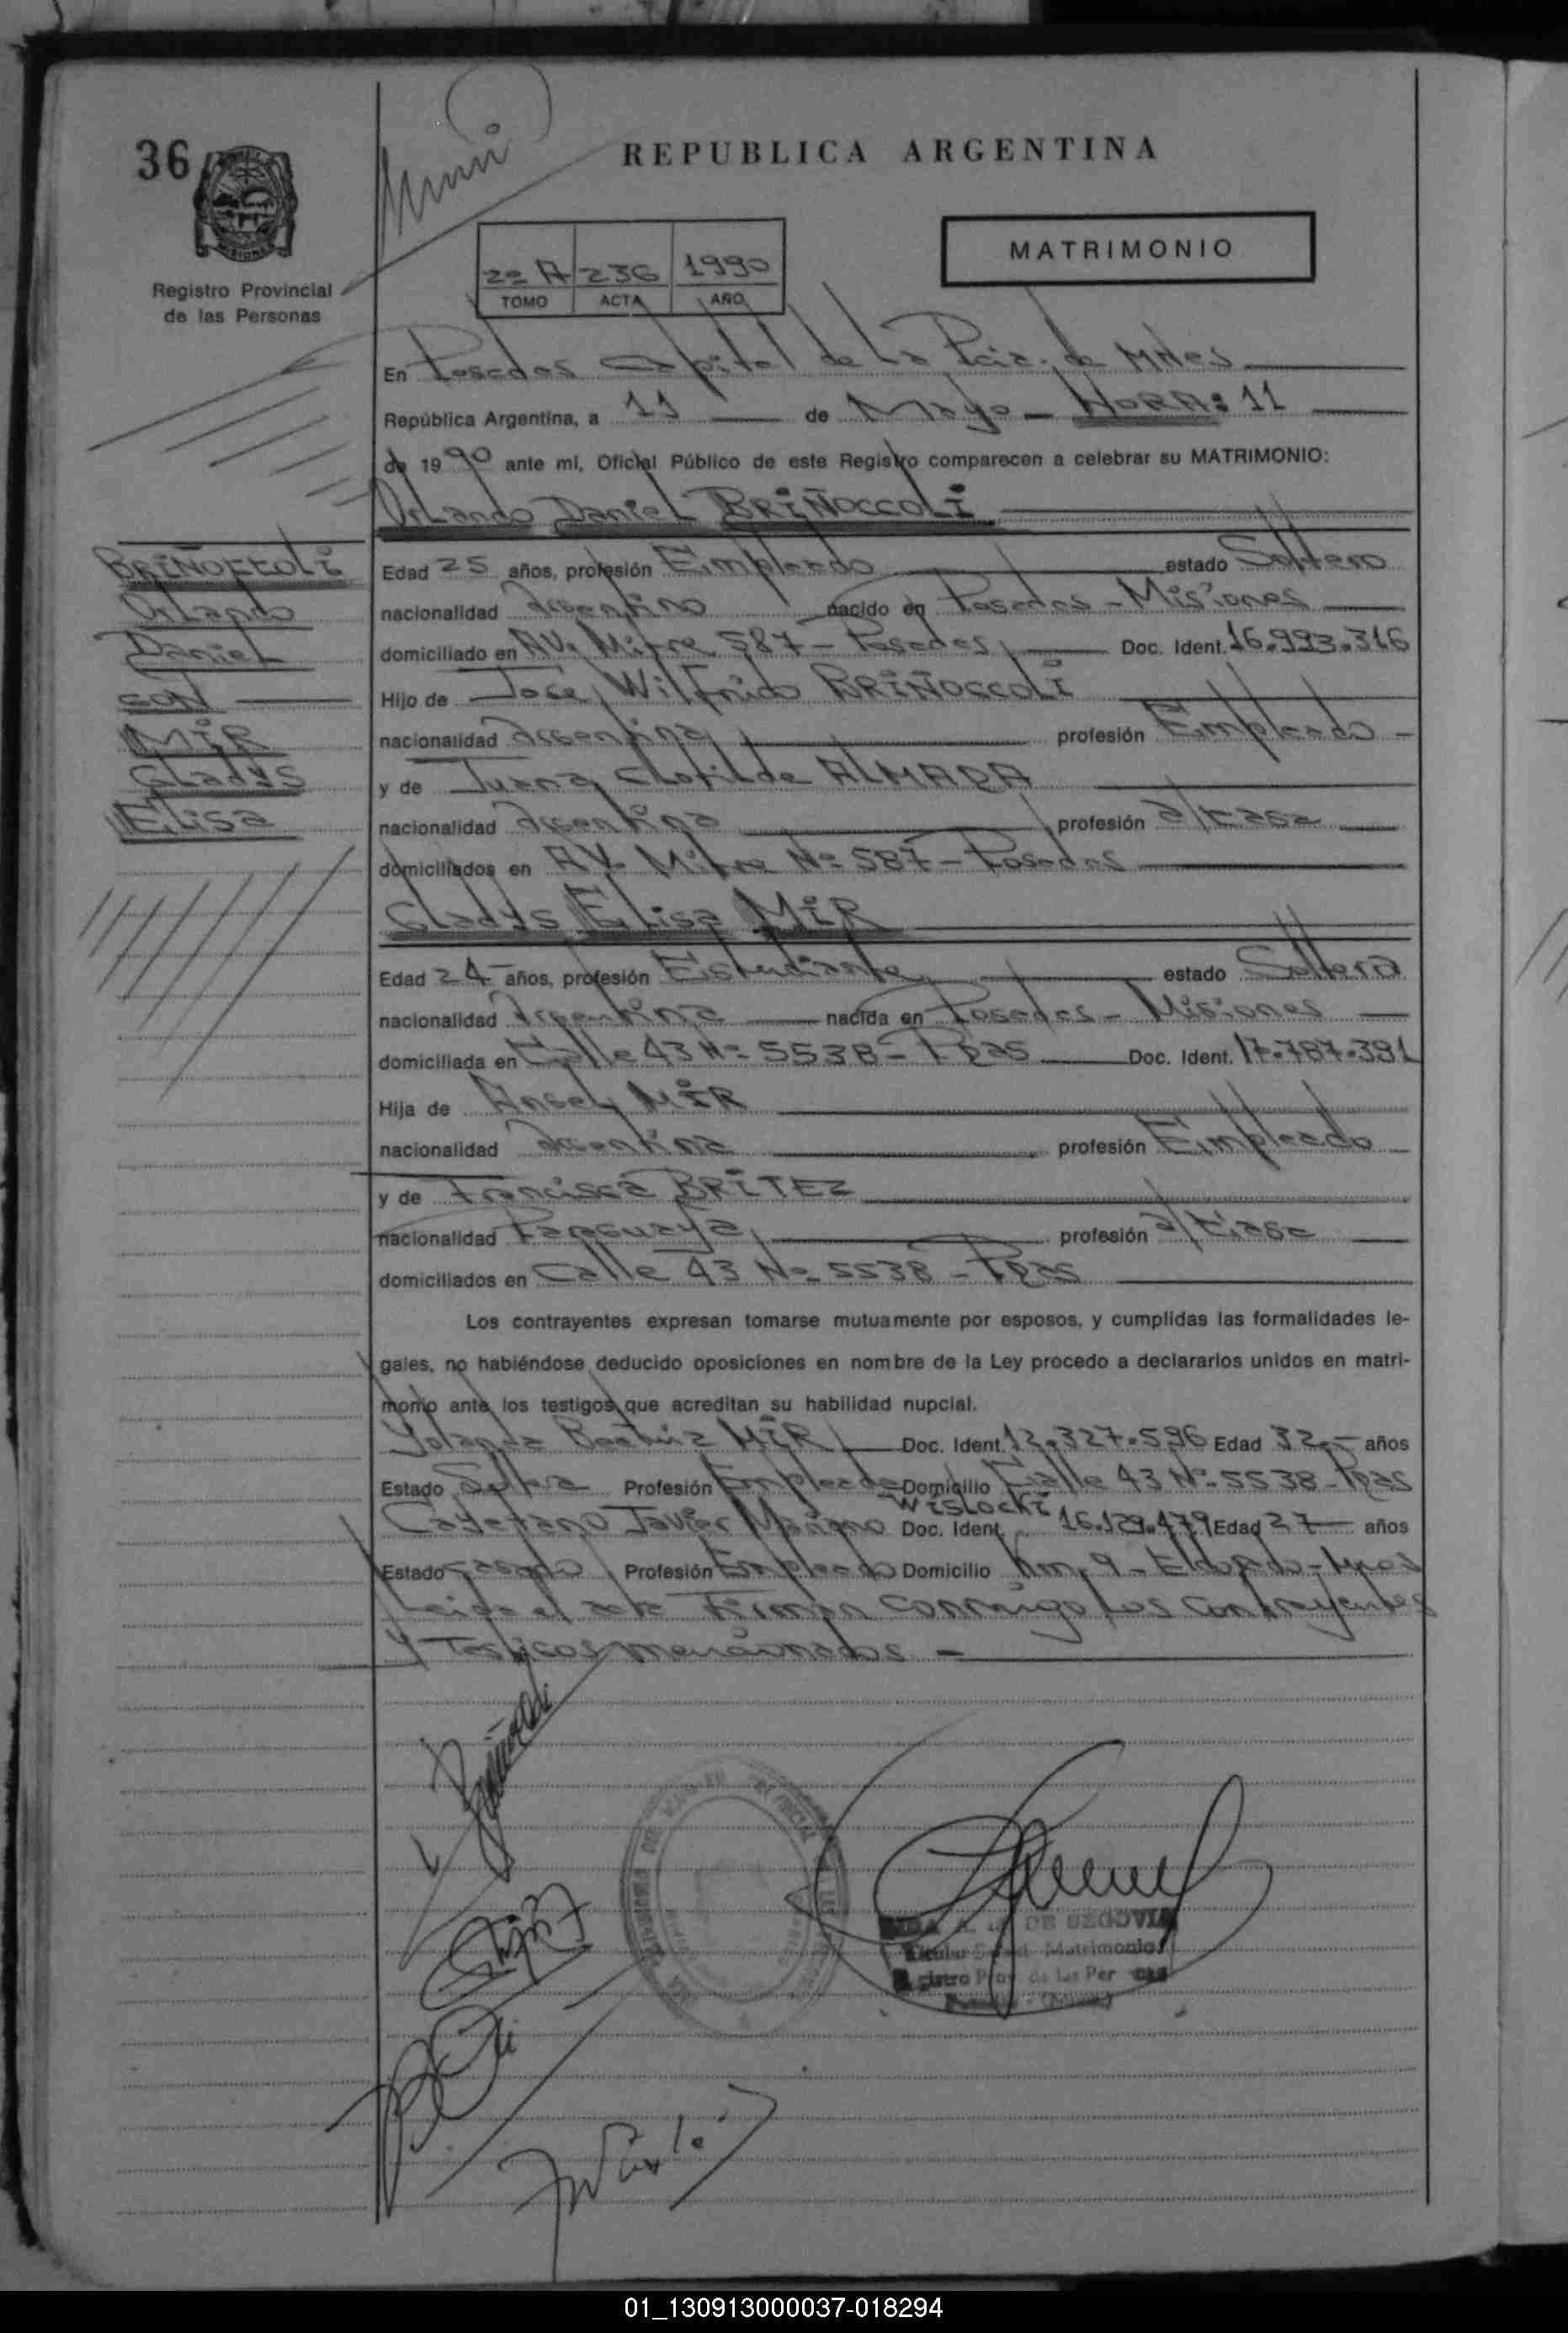 36
REPUBLICA ARGENTINA
MISIONES
Registro Provincial
de las Personas
2º A 236 1990
TOMO ACTA AÑO
MATRIMONIO
En Posadas Capital de La Pcia. de Mnes
República Argentina, a 11 de Mayo - HORA: 11
de 1990 ante mi, Oficial Público de este Registro comparecen a celebrar su MATRIMONIO:
Orlando Daniel BRIÑOCCOLI
BRIÑOCCOLI
Orlando
Daniel
CON
MIR
Gladys
Elisa
Edad 25 años, profesión Empleado estado Soltero
nacionalidad Argentino nacido en Posadas - Misiones
domiciliado en AV. Mitre 587 - Posadas Doc. Ident. 16.993.316
Hijo de José Wilfrido BRIÑOCCOLI
nacionalidad Argentina profesión Empleado -
y de Juana Clotilde ALMADA
nacionalidad Argentina profesión a/casa
domiciliados en AV. Mitre Nº 587 - Posadas
Gladys Elisa MIR
Edad 24 años, profesión Estudiante estado Soltera
nacionalidad Argentina nacida en Posadas - Misiones
domiciliada en Calle 43 Nº 5538 - Pdas Doc. Ident. 17.787.391
Hija de Angel MIR
nacionalidad Argentina profesión Empleado
y de Francisca BRITEZ
nacionalidad Paraguaya profesión a/casa
domiciliados en Calle 43 Nº 5538 - Pdas
Los contrayentes expresan tomarse mutuamente por esposos, y cumplidas las formalidades le-
gales, no habiéndose deducido oposiciones en nombre de la Ley procedo a declararlos unidos en matri-
monio ante los testigos que acreditan su habilidad nupcial.
Yolanda Beatriz MIR Doc. Ident. 12.327.596 Edad 32.- años
Estado Soltera Profesión Empleada Domicilio Calle 43 Nº 5538 - Pdas
Cayetano Javier Mariano Wislocki Doc. Ident. 16.129.479 Edad 27 años
Estado casado Profesión Empleado Domicilio Km. 9 - Eldorado - Mnes
Leida el acta Firman conmigo los contrayentes
y Testigos mencionados -
DE SEGOVIA
Titular Matrimonios
Registro Prov. de las Personas
01_130913000037-018294